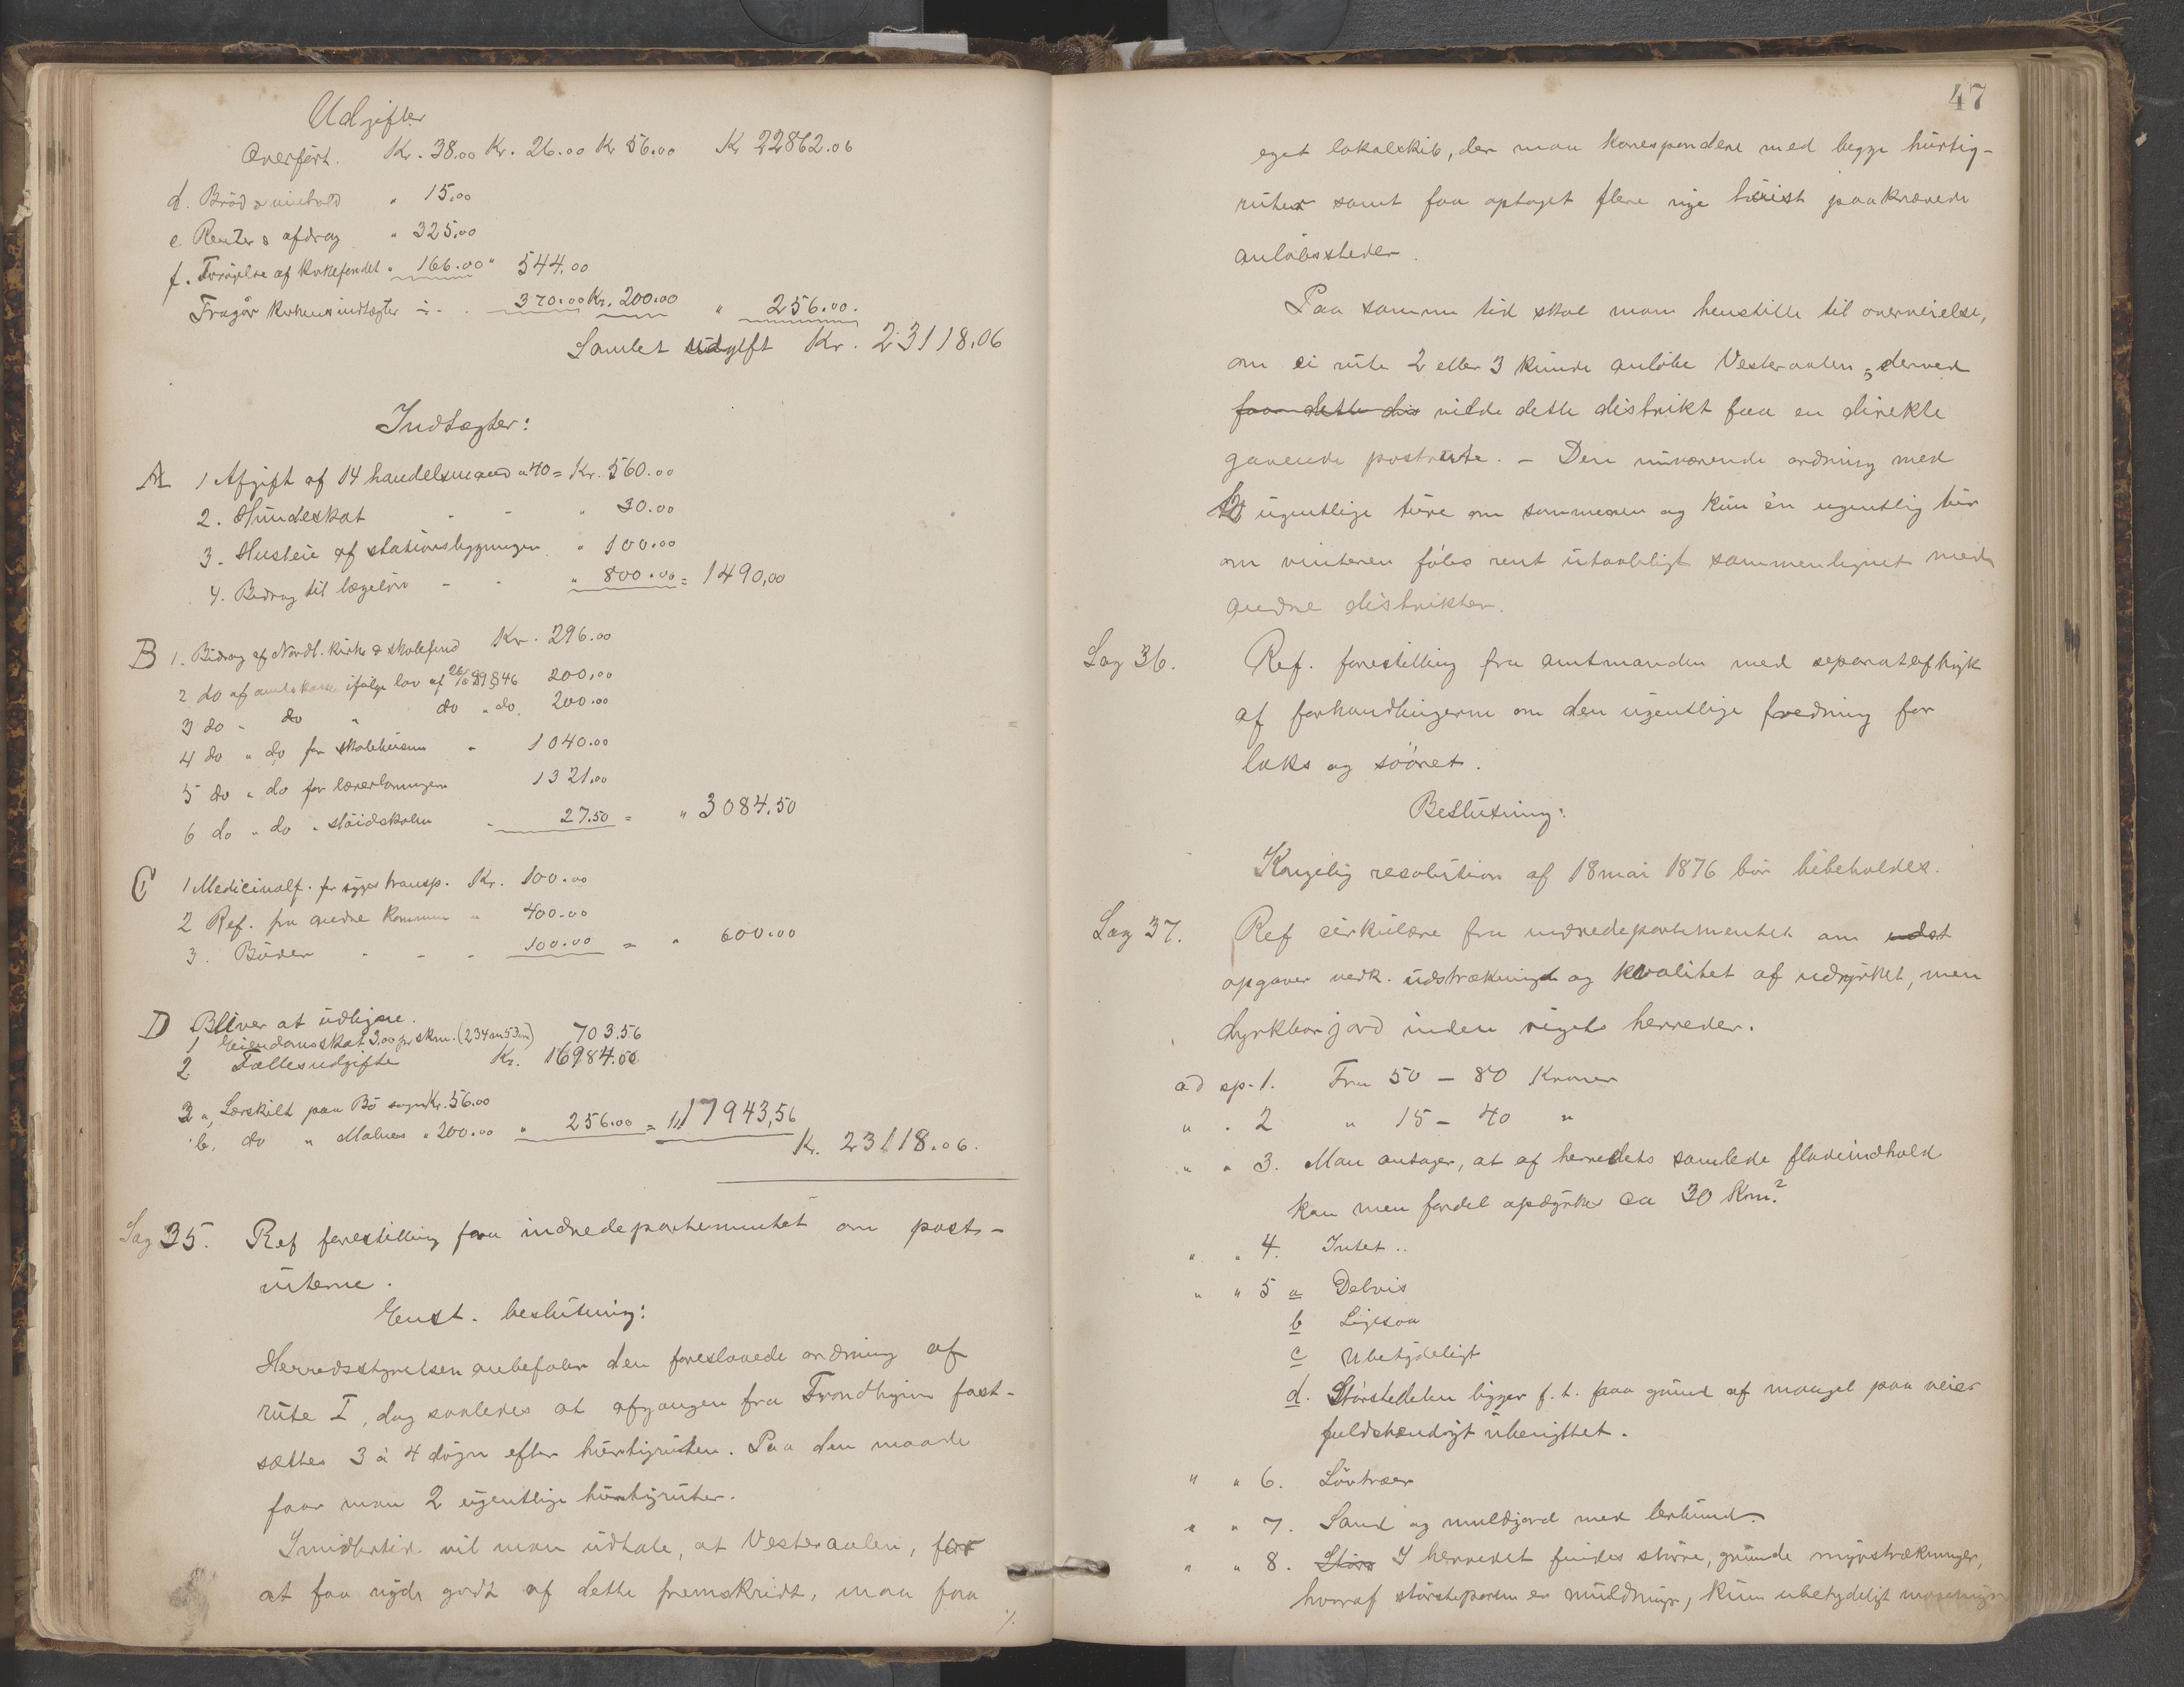 Udgifter
Overført. Kr. 38.00 Kr. 26.00 Kr 56.00 Kr 22862.06
d. Bröd & vinhold " 15.00
e Renter & afdrag " 325.00
f. Forøgelse af Kirkefondet " 166.00 " 544.00
Fragår Kirkens indtægter ÷ 370.00 Kr. 200.00 " 256.00.
Samlet udgift Kr. 23118.06
Indtægter:
A 1 Afgift af 14 handelsmænd a 40 = Kr. 560.00
2. Hundeskat " 30.00
3. Husleie af stationsbygningen " 100.00
4. Bidrag til lægelön " 800.00 = 1490,00
B 1. Bidrag af Nordl. kirke & skolefond Kr. 296.00
2 do af amtskassen ifølge lov af 26/6 89 § 46 200,00
3 do " do " do " do 200.00
4 do " do for skolehusene " 1040.00
5 do " do for lærerlønningen 1321.00
6 do " do " slöidskolen 27.50 = " 3084.50
C 1 Medicinalf. for syges transp. Kr. 100.00
2 Ref. fra andre Kommuner " 400.00
3. Böder 100.00 = " 600.00
D Bliver at udligne.
1 Eiendomsskat 3,00 pr skm. (234 5 ) 703.56
2. Fællesudgifter Kr. 16984.00
3 a, Særskilt paa Bö sogn Kr. 56.00
b. do " Malnes " 200.00 " 256.00 = " 17943,56
Kr. 23118.06.
Sag 35. Ref forestilling fra indredepartementet om post-
ruterne.
Enst. beslutning:
Herredsstyrelsen anbefaler den foreslaaede ordning af
rute I, dog saaledes at afgangen fra Trondhjem fast-
sættes 3 à 4 dögn efter hurtigruten. Paa den maade
faar man 2 ugentlige hurtigruter.
Imidlertid vil man udtale, at Vesteraalen, for
at faa nyde godt af dette fremskridt, maa faa
./.
47
eget lokalskib, der maa korrespondere med begge hurtig-
ruter samt faa optaget flere nye höist paakrævede
anlöbssteder.
Paa samme tid skal man henstille til overveielse,
om ei rute 2 eller 3 kunde anlöbe Vesteraalen, derved
faar dette dis vilde dette distrikt faa en direkte
gaaende postrute. - Den nuværende ordning med
to ugentlige ture om sommeren og kun én ugentlig tur
om vinteren föles rent utaaleligt sammenlignet med
andre distrikter.
Sag 36. Ref. forestilling fra amtmanden med separataftryk
af forhandlingerne om den ugentlige fredning for
laks og söörret.
Beslutning:
Kongelig resolution af 18 mai 1876 bör bibeholdes.
Sag 37. Ref cirkulære fra indredepartementet om udst
opgaver vedk. udstrækning og kvalitet af udyrket, men
dyrkbar jord inden rigets herreder.
ad sp. 1. Fra 50 - 80 Kroner
" " 2 " 15 - 40 "
" " 3. Man antager, at af herredets samlede fladeindhold
kan men fordel opdyrkes ca 30 Km.²
" " 4. Intet..
" " 5 a Delvis
b Ligesaa
c Ubetydeligt
d. Störstedelen ligger f.t. paa grund af mangel paa veier
fuldstændigt uberigttet.
" " 6. Lövtræer
" " 7. Sand og muldjord med lerbund.
" " 8. Störs I herredet findes störe, grunde myrstrækninger,
hvoraf störsteparten er muldmyr, kun ubetydeligt mosemyr